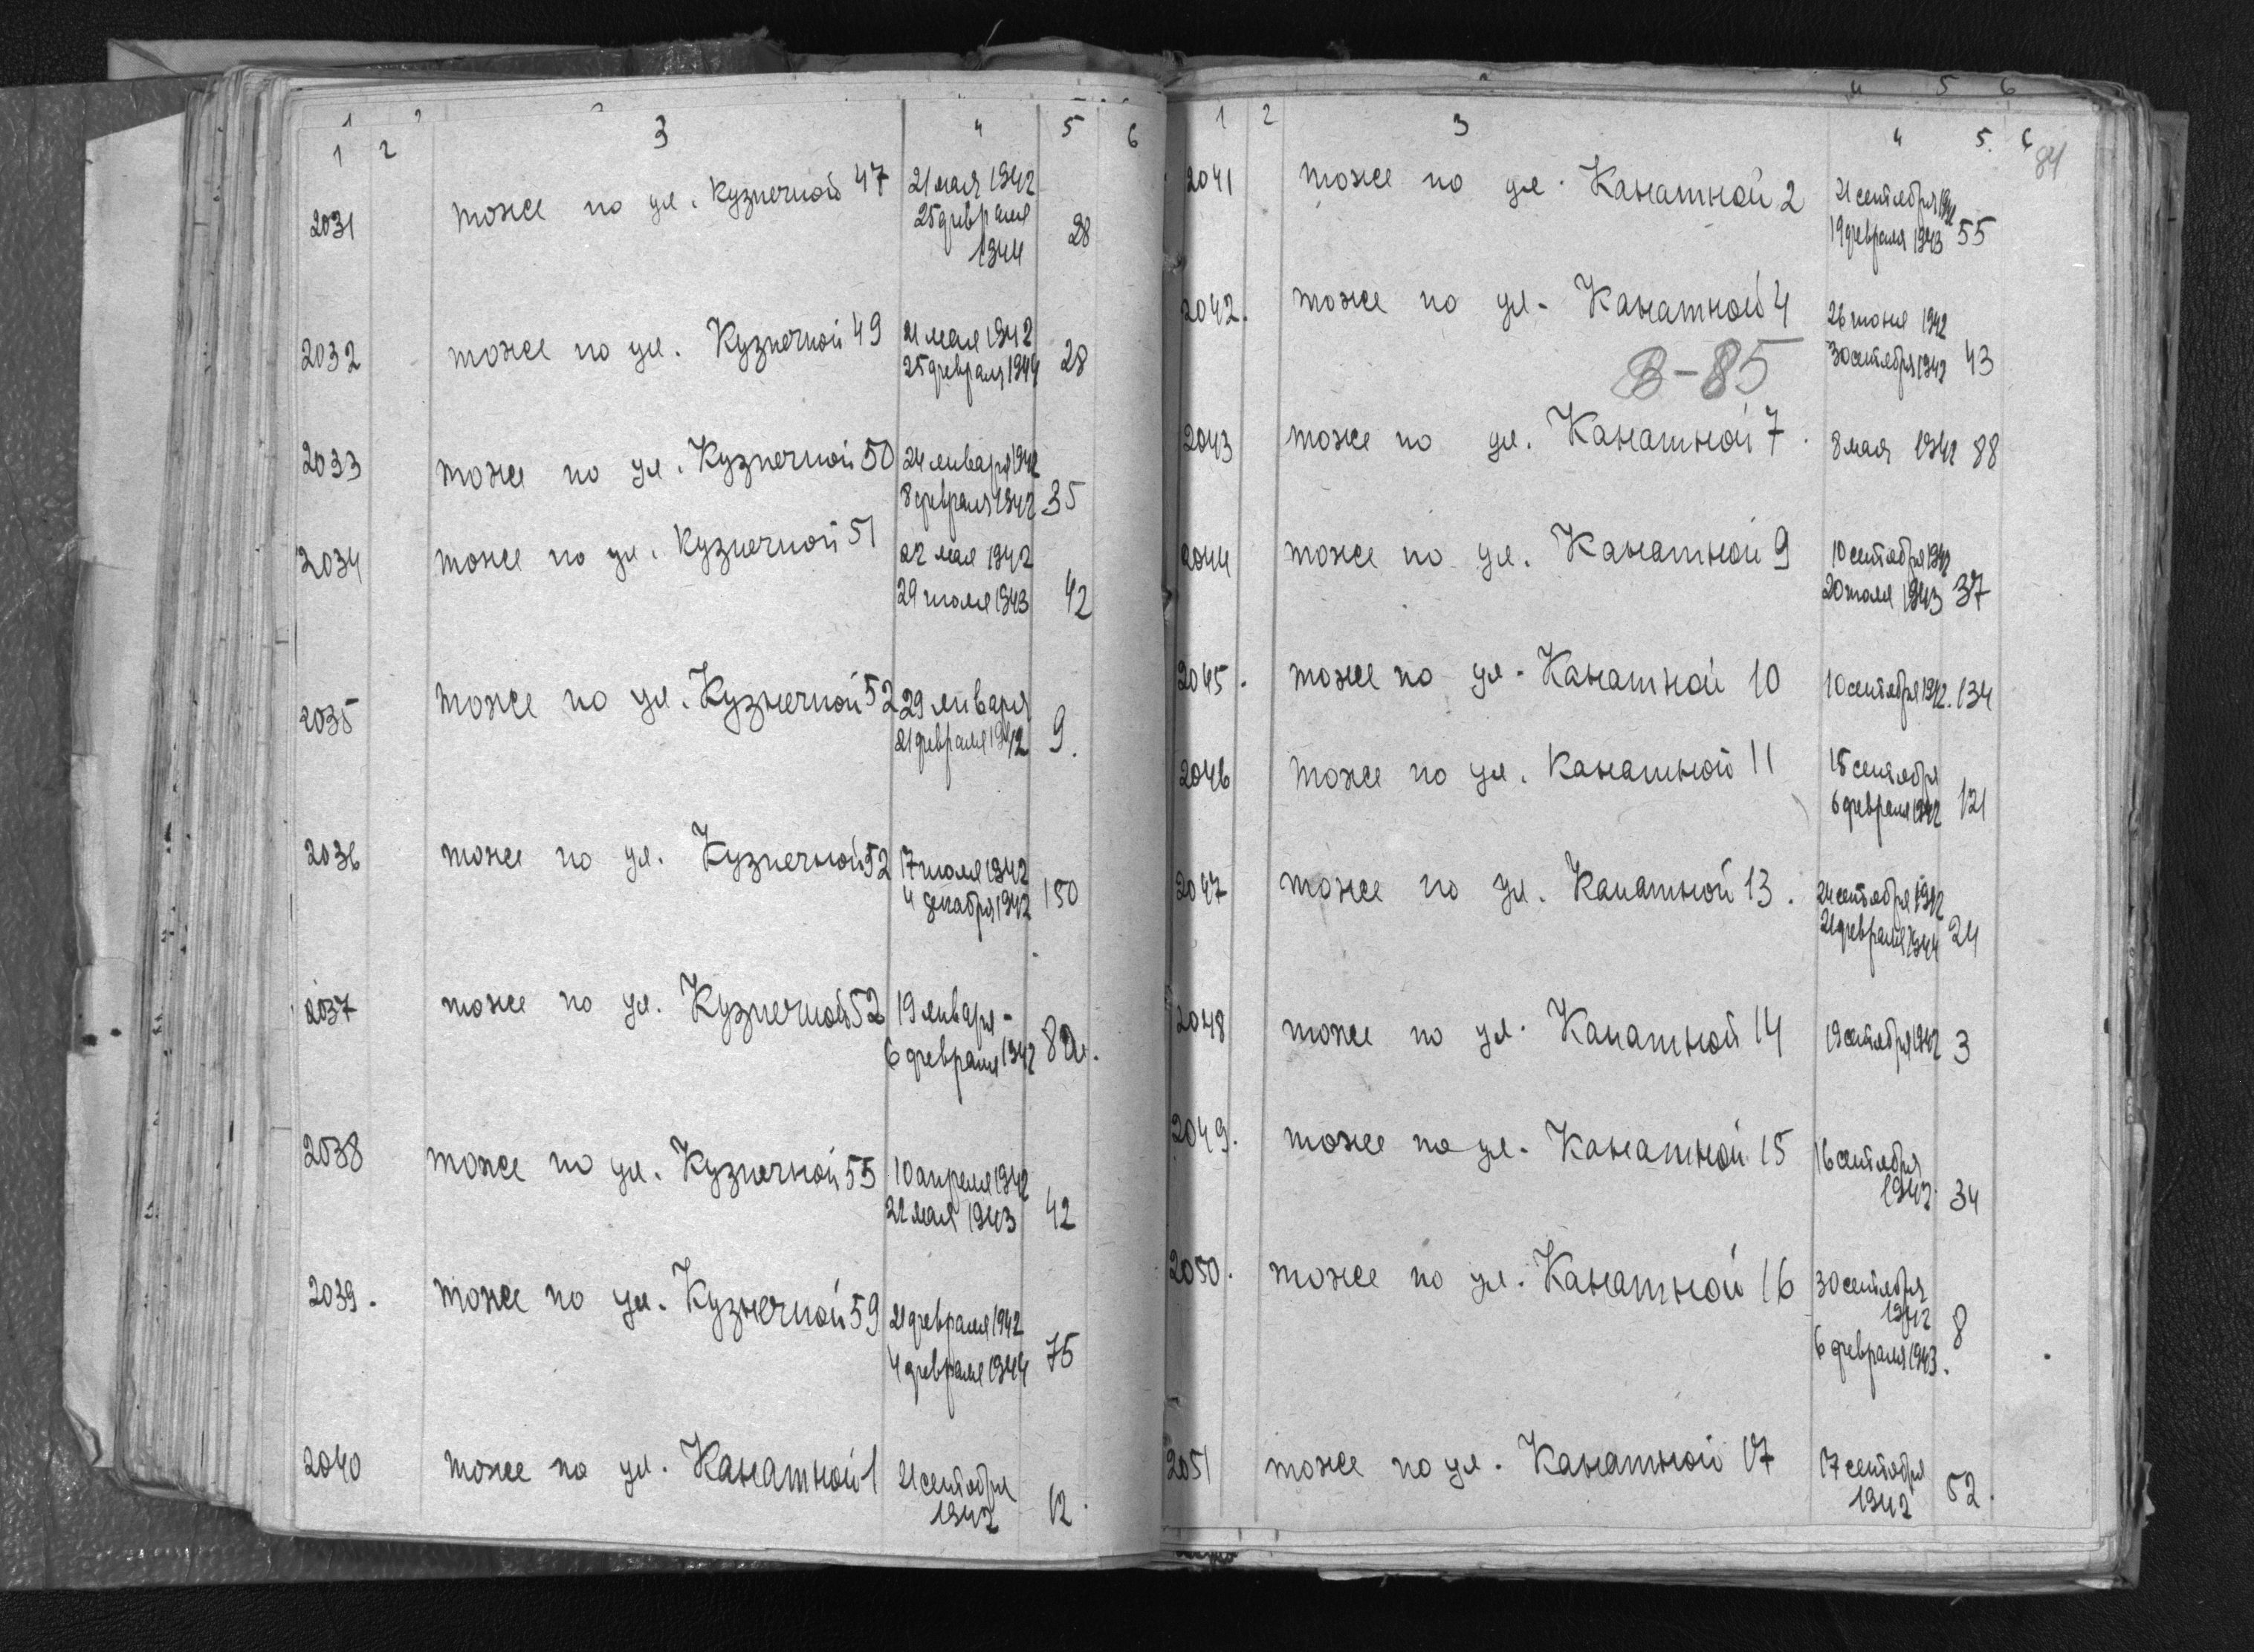 1 2 3 4 5 6
2031 тоже по ул. Кузнечной 47 21 мая 1942
25 февраля
1944 28
2032 тоже по ул. Кузнечной 49 21 мая 1942
25 февраля 1944 28
2033 тоже по ул. Кузнечной 50 24 января 1942
8 февраля 1942 35
2034 тоже по ул. Кузнечной 51 22 мая 1942
29 июля 1943 42
2035 тоже по ул. Кузнечной 52 29 января
21 февраля 1942 9.
2036 тоже по ул. Кузнечной 52 17 июля 1942
4 декабря 1942 150
2037 тоже по ул. Кузнечной 52 19 января -
6 февраля 1942
2038 тоже по ул. Кузнечной 55 10 апреля 1942
22 мая 1943 42
2039. тоже по ул. Кузнечной 59 21 февраля 1942
4 февраля 1944 75
2040 тоже по ул. Канатной 1 21 сентября
1942 12.
1 2 3 4 5. 6
84
2041 тоже по ул. Канатной 2 21 сентября 1942
19 февраля 1943 55
2042. тоже по ул. Канатной 4 26 июня 1942
30 сентября 1942 43
В-85
2043 тоже по ул. Канатной 7. 8 мая 1942 88
2044 тоже по ул. Канатной 9 10 сентября 1942
20 июля 1943 37
2045. тоже по ул. Канатной 10 10 сентября 1942. 134
2046 тоже по ул. Канатной 11 15 сентября
6 февраля 1942 121
2047 тоже по ул. Канатной 13. 24 сентября 1942
21 февраля 1944 24
2048 тоже по ул. Канатной 14 19 сентября 1942 3
2049. тоже по ул. Канатной 15 16 сентября
1942. 34
2050. тоже по ул. Канатной 16 30 сентября
1942
6 февраля 1943. 8
2051 тоже по ул. Канатной 17 17 сентября
1942 52.